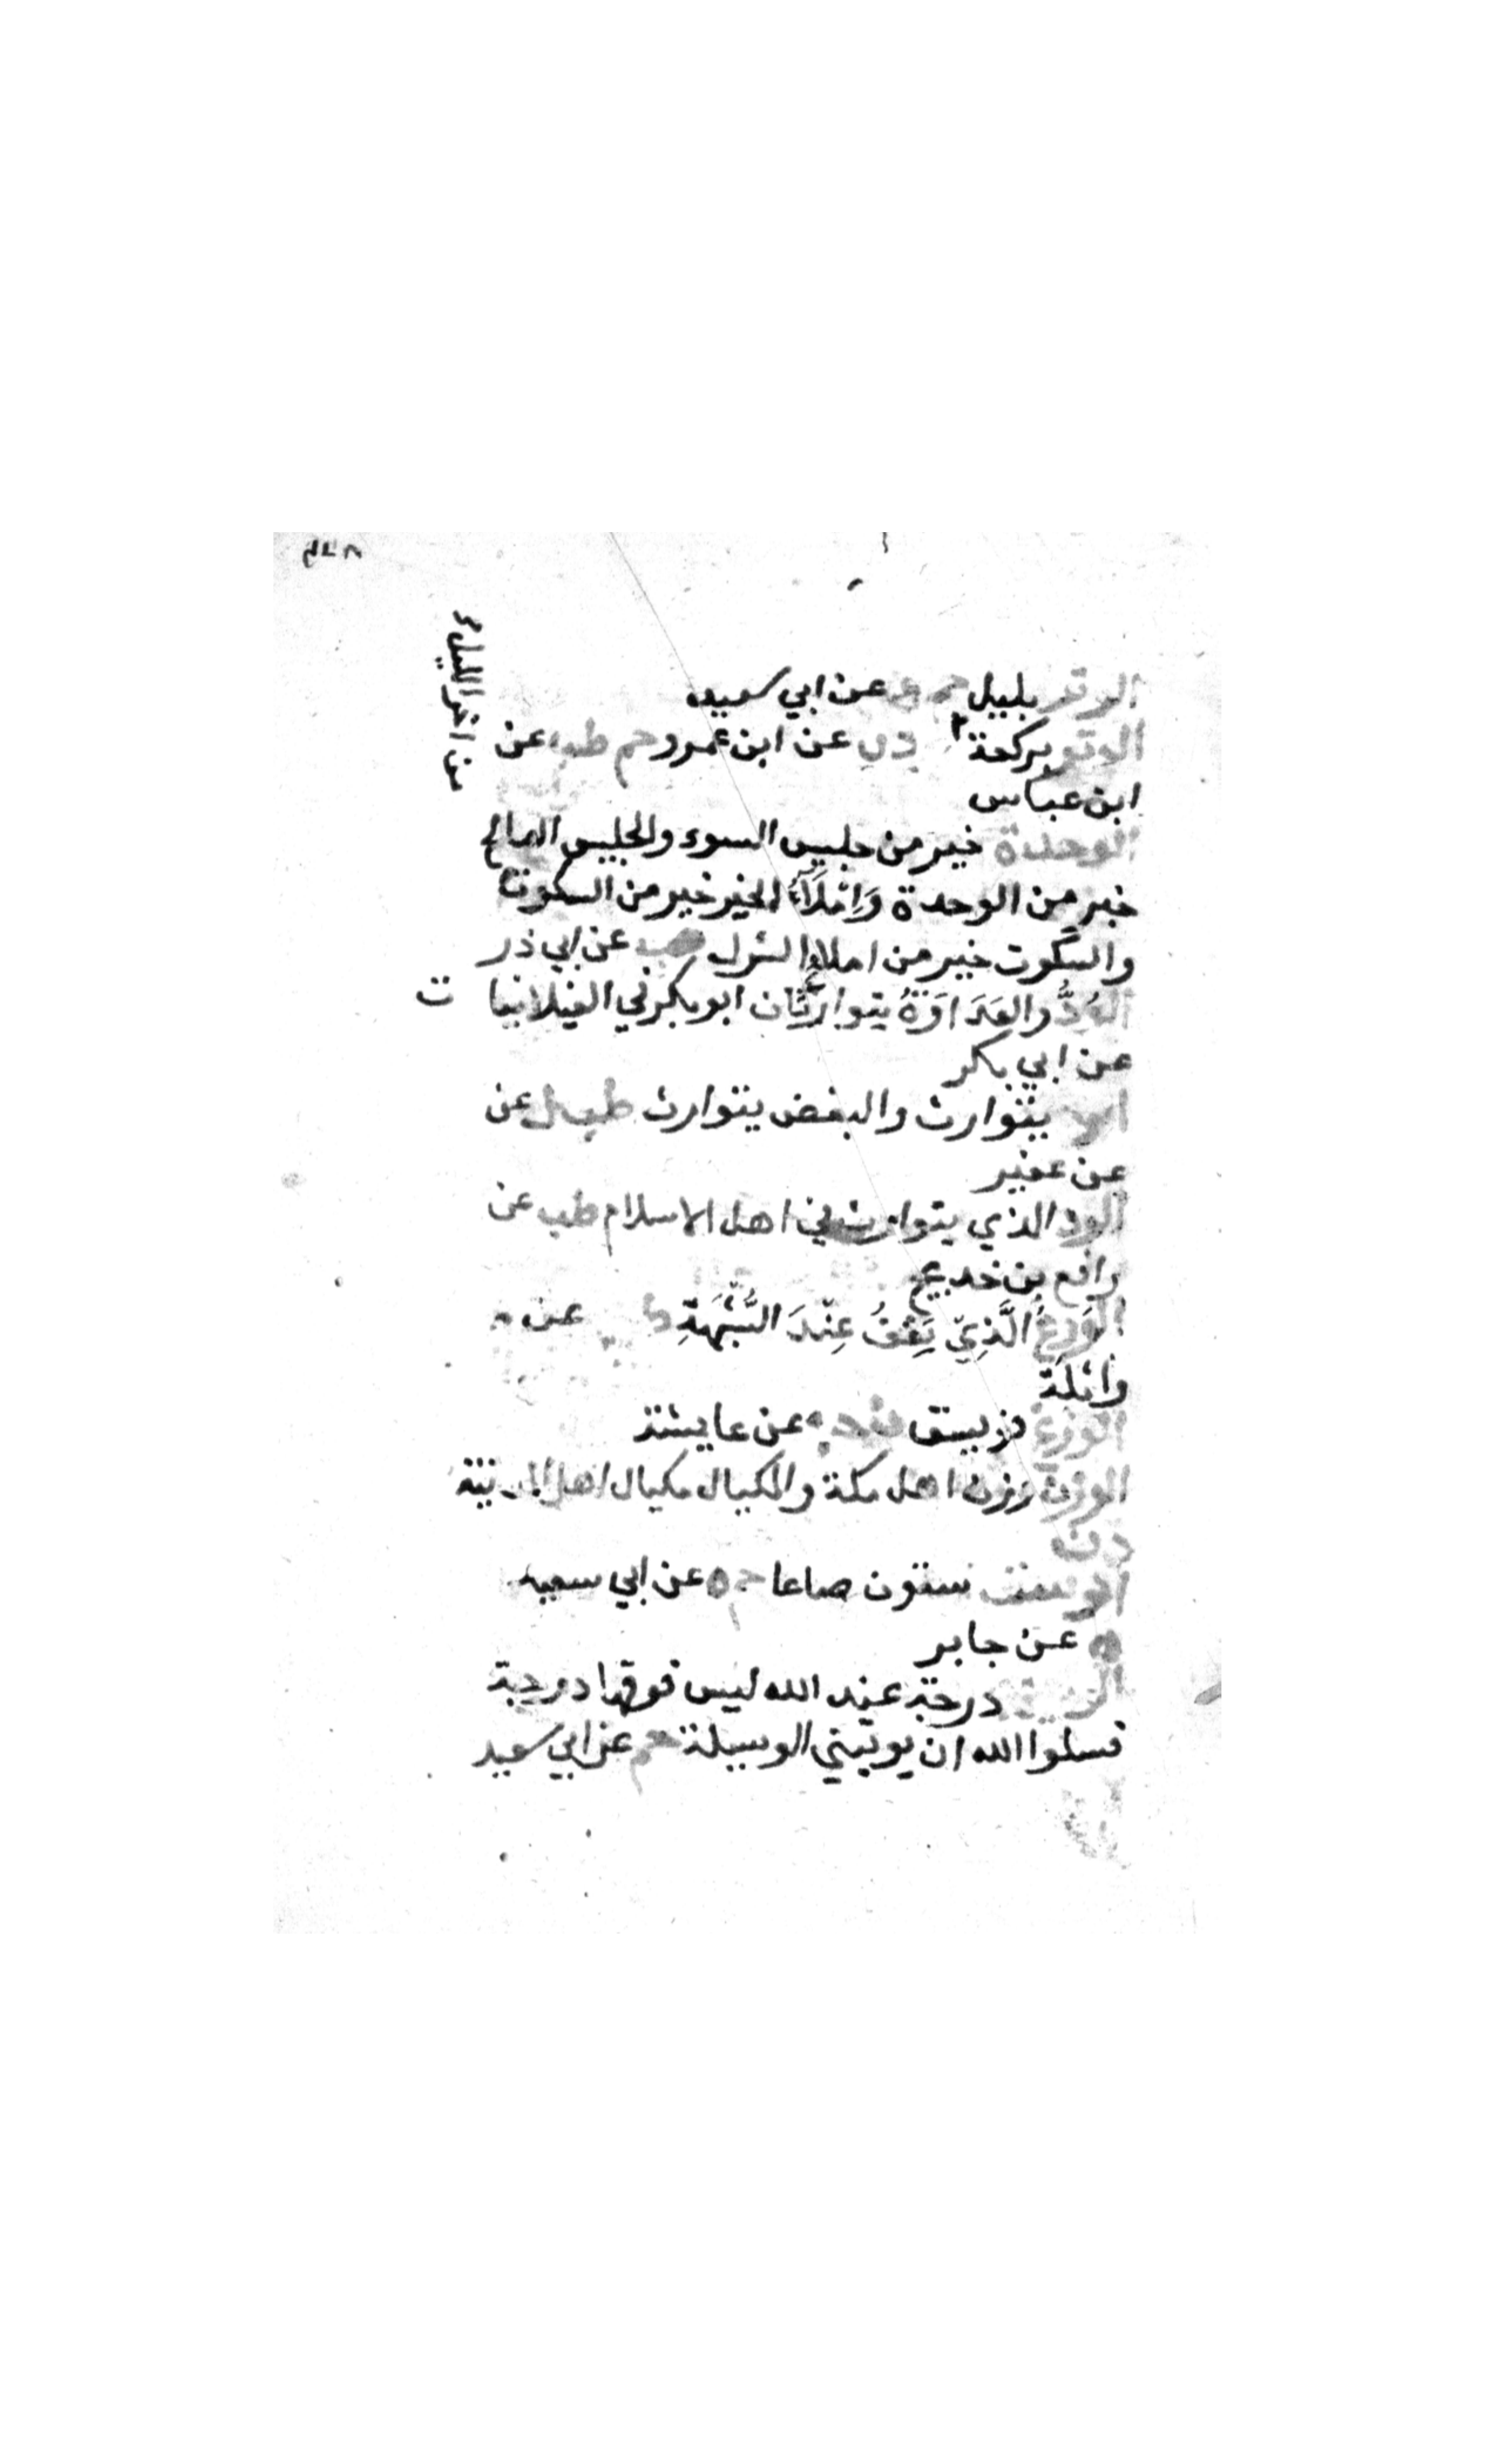 من اخر الليل
الوتر بليل حم ع عن ابي سعيد
الوتر بركعة د ن عن ابن عمر و حم طب عن
ابن عباس
الوحدة خير من جليس السوء والجليس الصالح
خير من الوحدة وَاِمْلَآءُ الخير خير من السكوت
والسكوت خير من املاء الشر ك هب عن ابي ذر
الوُدُّ والعَدَاوَةُ يتوارثَان ابو بكر في الغيلانيات
عن ابي بكر
يتوارث والبغض يتوارث طب ك عن
عن عفير
الود الذي يتوارث في اهل الاسلام طب عن
رافع بن خديج
الوَرِعُ الَّذِيّ يَقِفُ عِنْدَ الشُّبْهَةِ عن
واثلة
الوزغ فويسق عن عايشة
الوزن وزن اهل مكة والمكيال مكيال اهل المدينة
د ن
الوسق ستون صاعا حم ه عن ابي سعيد
ه عن جابر
درجة عند الله ليس فوقها درجة
فسلوا الله ان يوتيني الوسيلة حم عن ابي سعيد